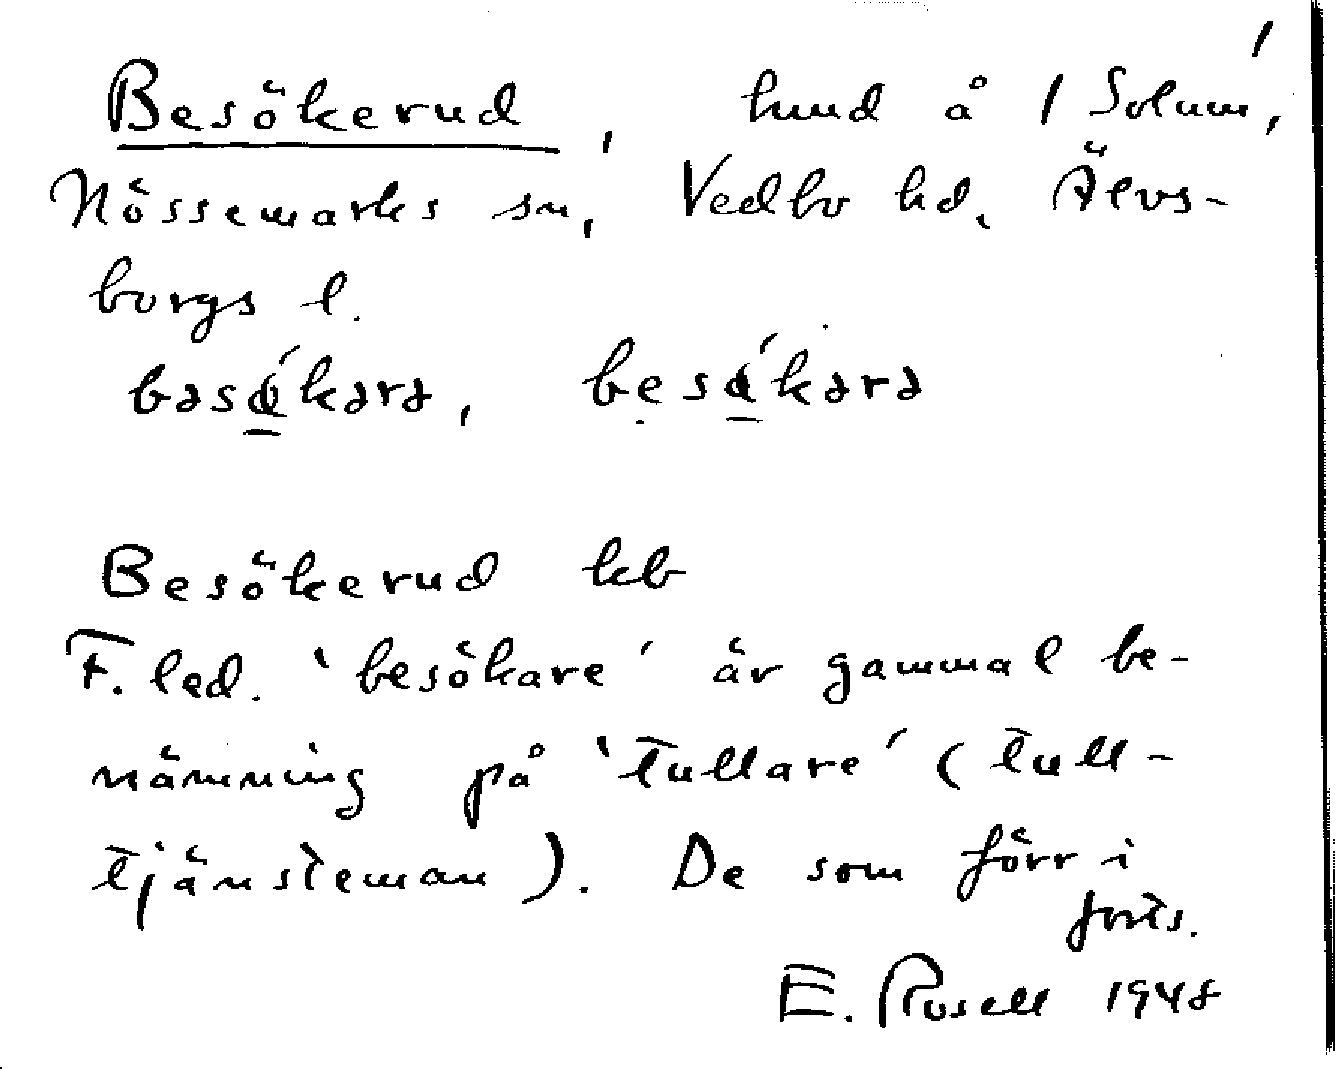 /
Besökerud, hmd å 1 Solum,
Nössemarks sn, Vedbo hd, Älvs-
borgs l.
bəsǿ̱kərə, besǿ̱kərə
Besökerud kb
F. led. 'besökare' är gammal be-
nämning på 'tullare' (tull-
tjänsteman). De som förr i
forts.
E. Rosell 1948